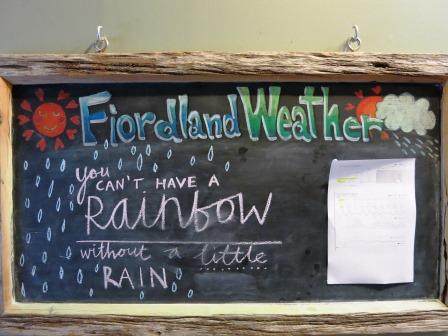 Fiordland Weather
you
CAN'T HAVE A
RAiNBOW
without a little
RAIN